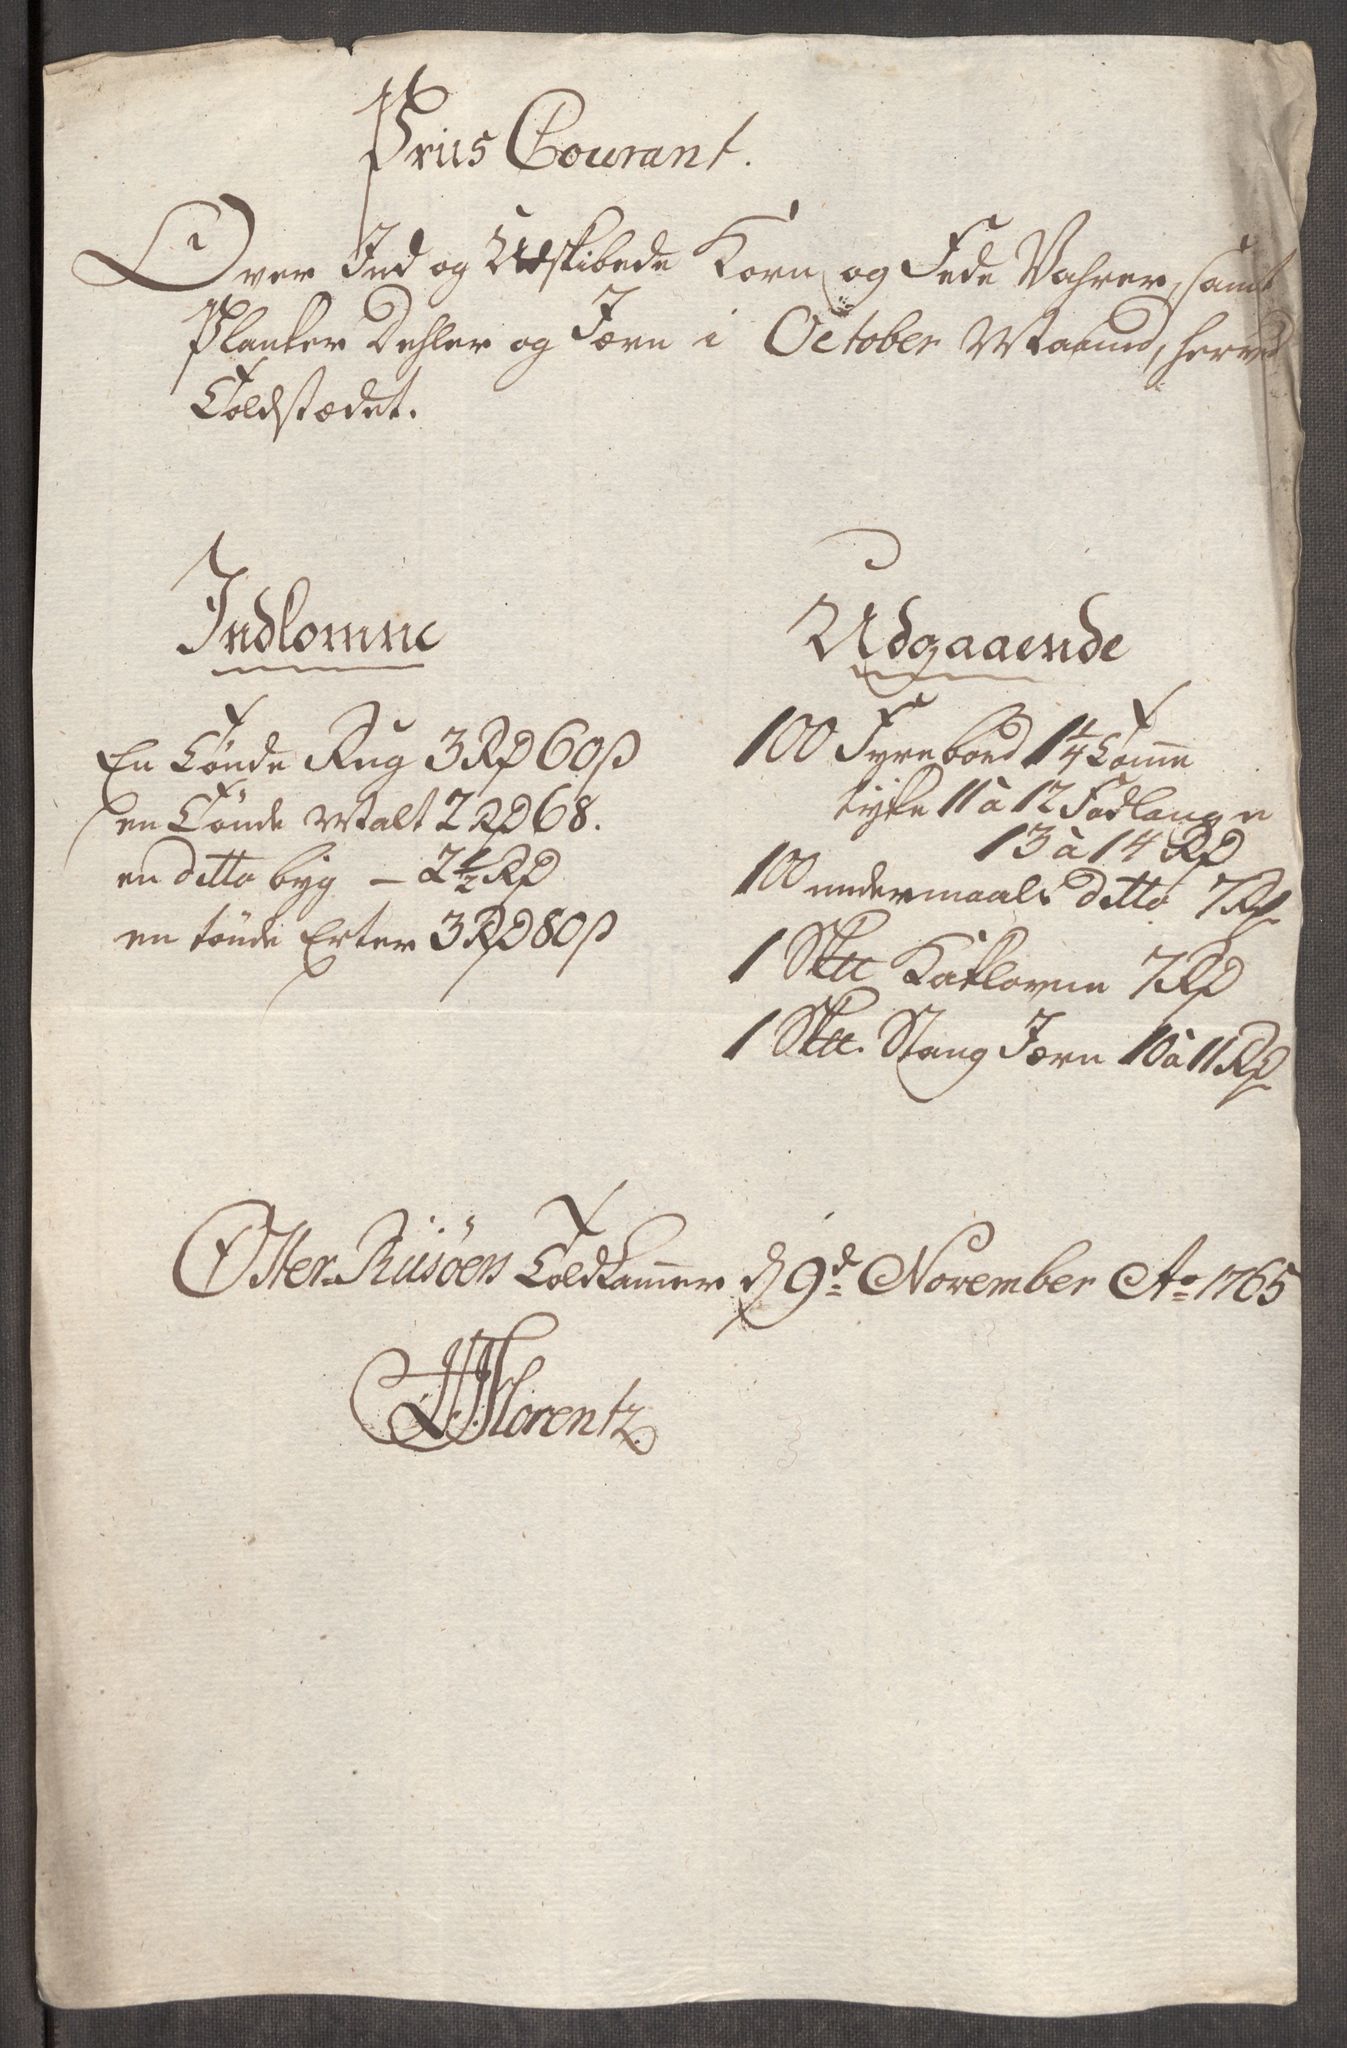 Priis Courant.
Over Ind og Udskibede Korn og Fede Vahrer, samt
Planker Dehler og Jærn i October Maaned, herved
Toldstædet.
Indkomne
En Tönde Rug 3 Rd 60 ß
en Tönde Malt 2 Rd 68.
en ditto byg - 2 1/2 Rd
en tönde Erter 3 Rd 80 ß
Udgaaende
100 Fyrrebord 1 1/4 Tomme
tyke 11 à 12 Fod lange
13 à 14 Rd
100 undermaals ditto 7 Rd
1 Sktt Kakloven 7 Rd
1 Sktt. Stang Jærn 10 à 11 Rd
Öster-Riisöers Toldkammer d 9d November Ao 1765
Florentz